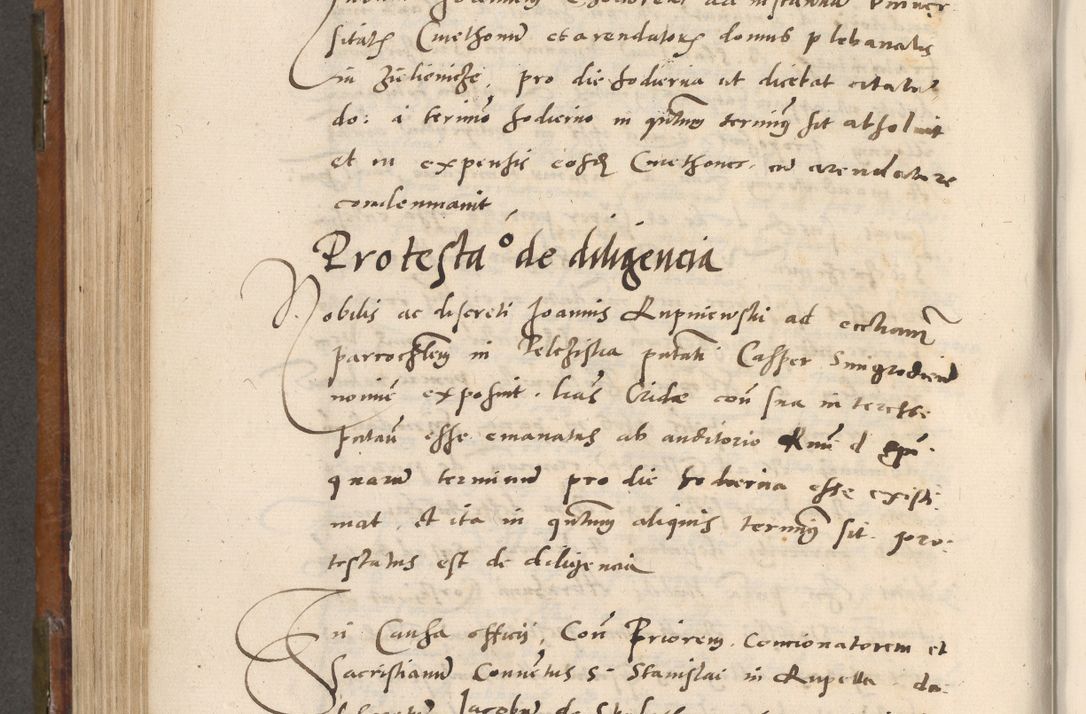 sitatis Cmethonum et arendatoris domus plebanalis
in Zielienicze, pro die hodierna ut dicebat citatus
do: a termino hodierno in quantum terminus sit absolvit
et in expensis eosdem Cmethones cum arendatore
condemnavit
Protestao de diligencia
Nobilis ac discreti Joannis Rupniewski ad ecclesiam
parrochialem in Pelchistia putati Casper
nomine exposuit. literas Cridae coram sua interesse
putan esse emanatas ab auditorio Rmi d epi.
quarum terminum pro die hodierna esse existi-
mat. Et ita in quantum aliquis terminus sit. pro-
testatus est de diligencia
In Causa officii, Contra Priorem, Concionatorem et
Sacristianum Conventus S. Stanislai in Rupella do-
Jacobum de